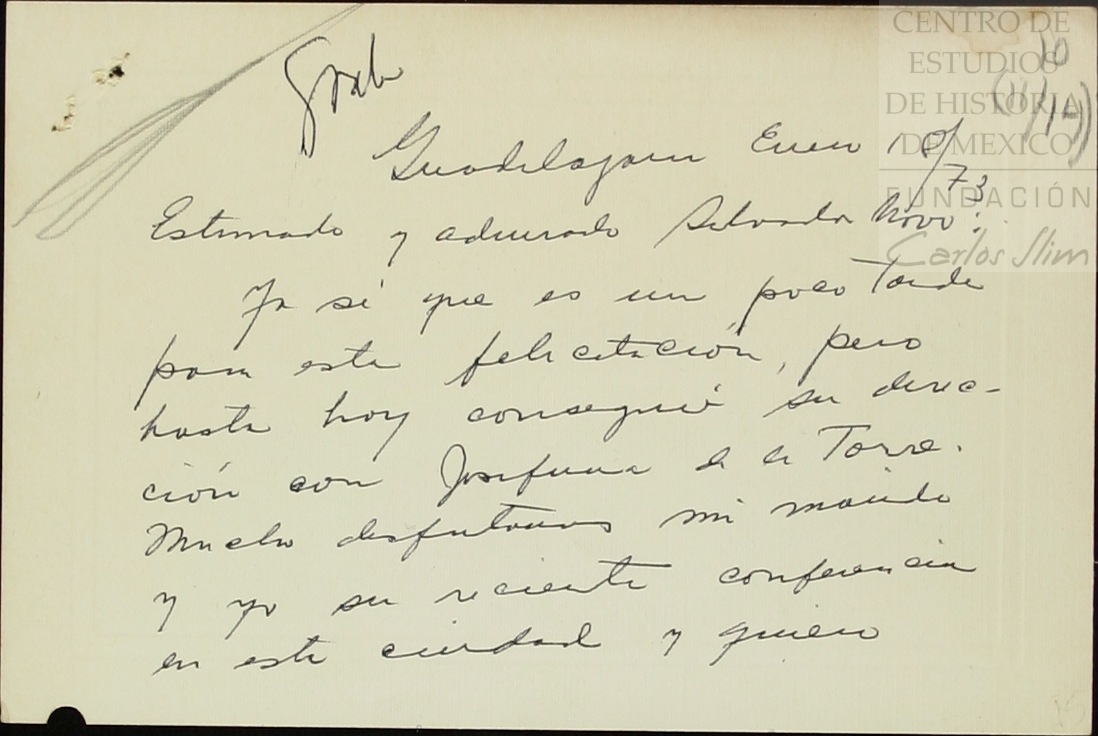 CENTRO DE
ESTUDIOS
DE HISTORIA
DE MEXICO
FUNDACIÓN
Carlos Slim
10
Guadalajara Enero 10/73
Estimado y admirado Salvador Novo:
Ya sé que es un poco tarde
para esta felicitación, pero
hasta hoy conseguí su direc-
ción con Josefina de la Torre.
Mucho disfrutamos mi marido
y yo su reciente conferencia
en esta ciudad y quiero